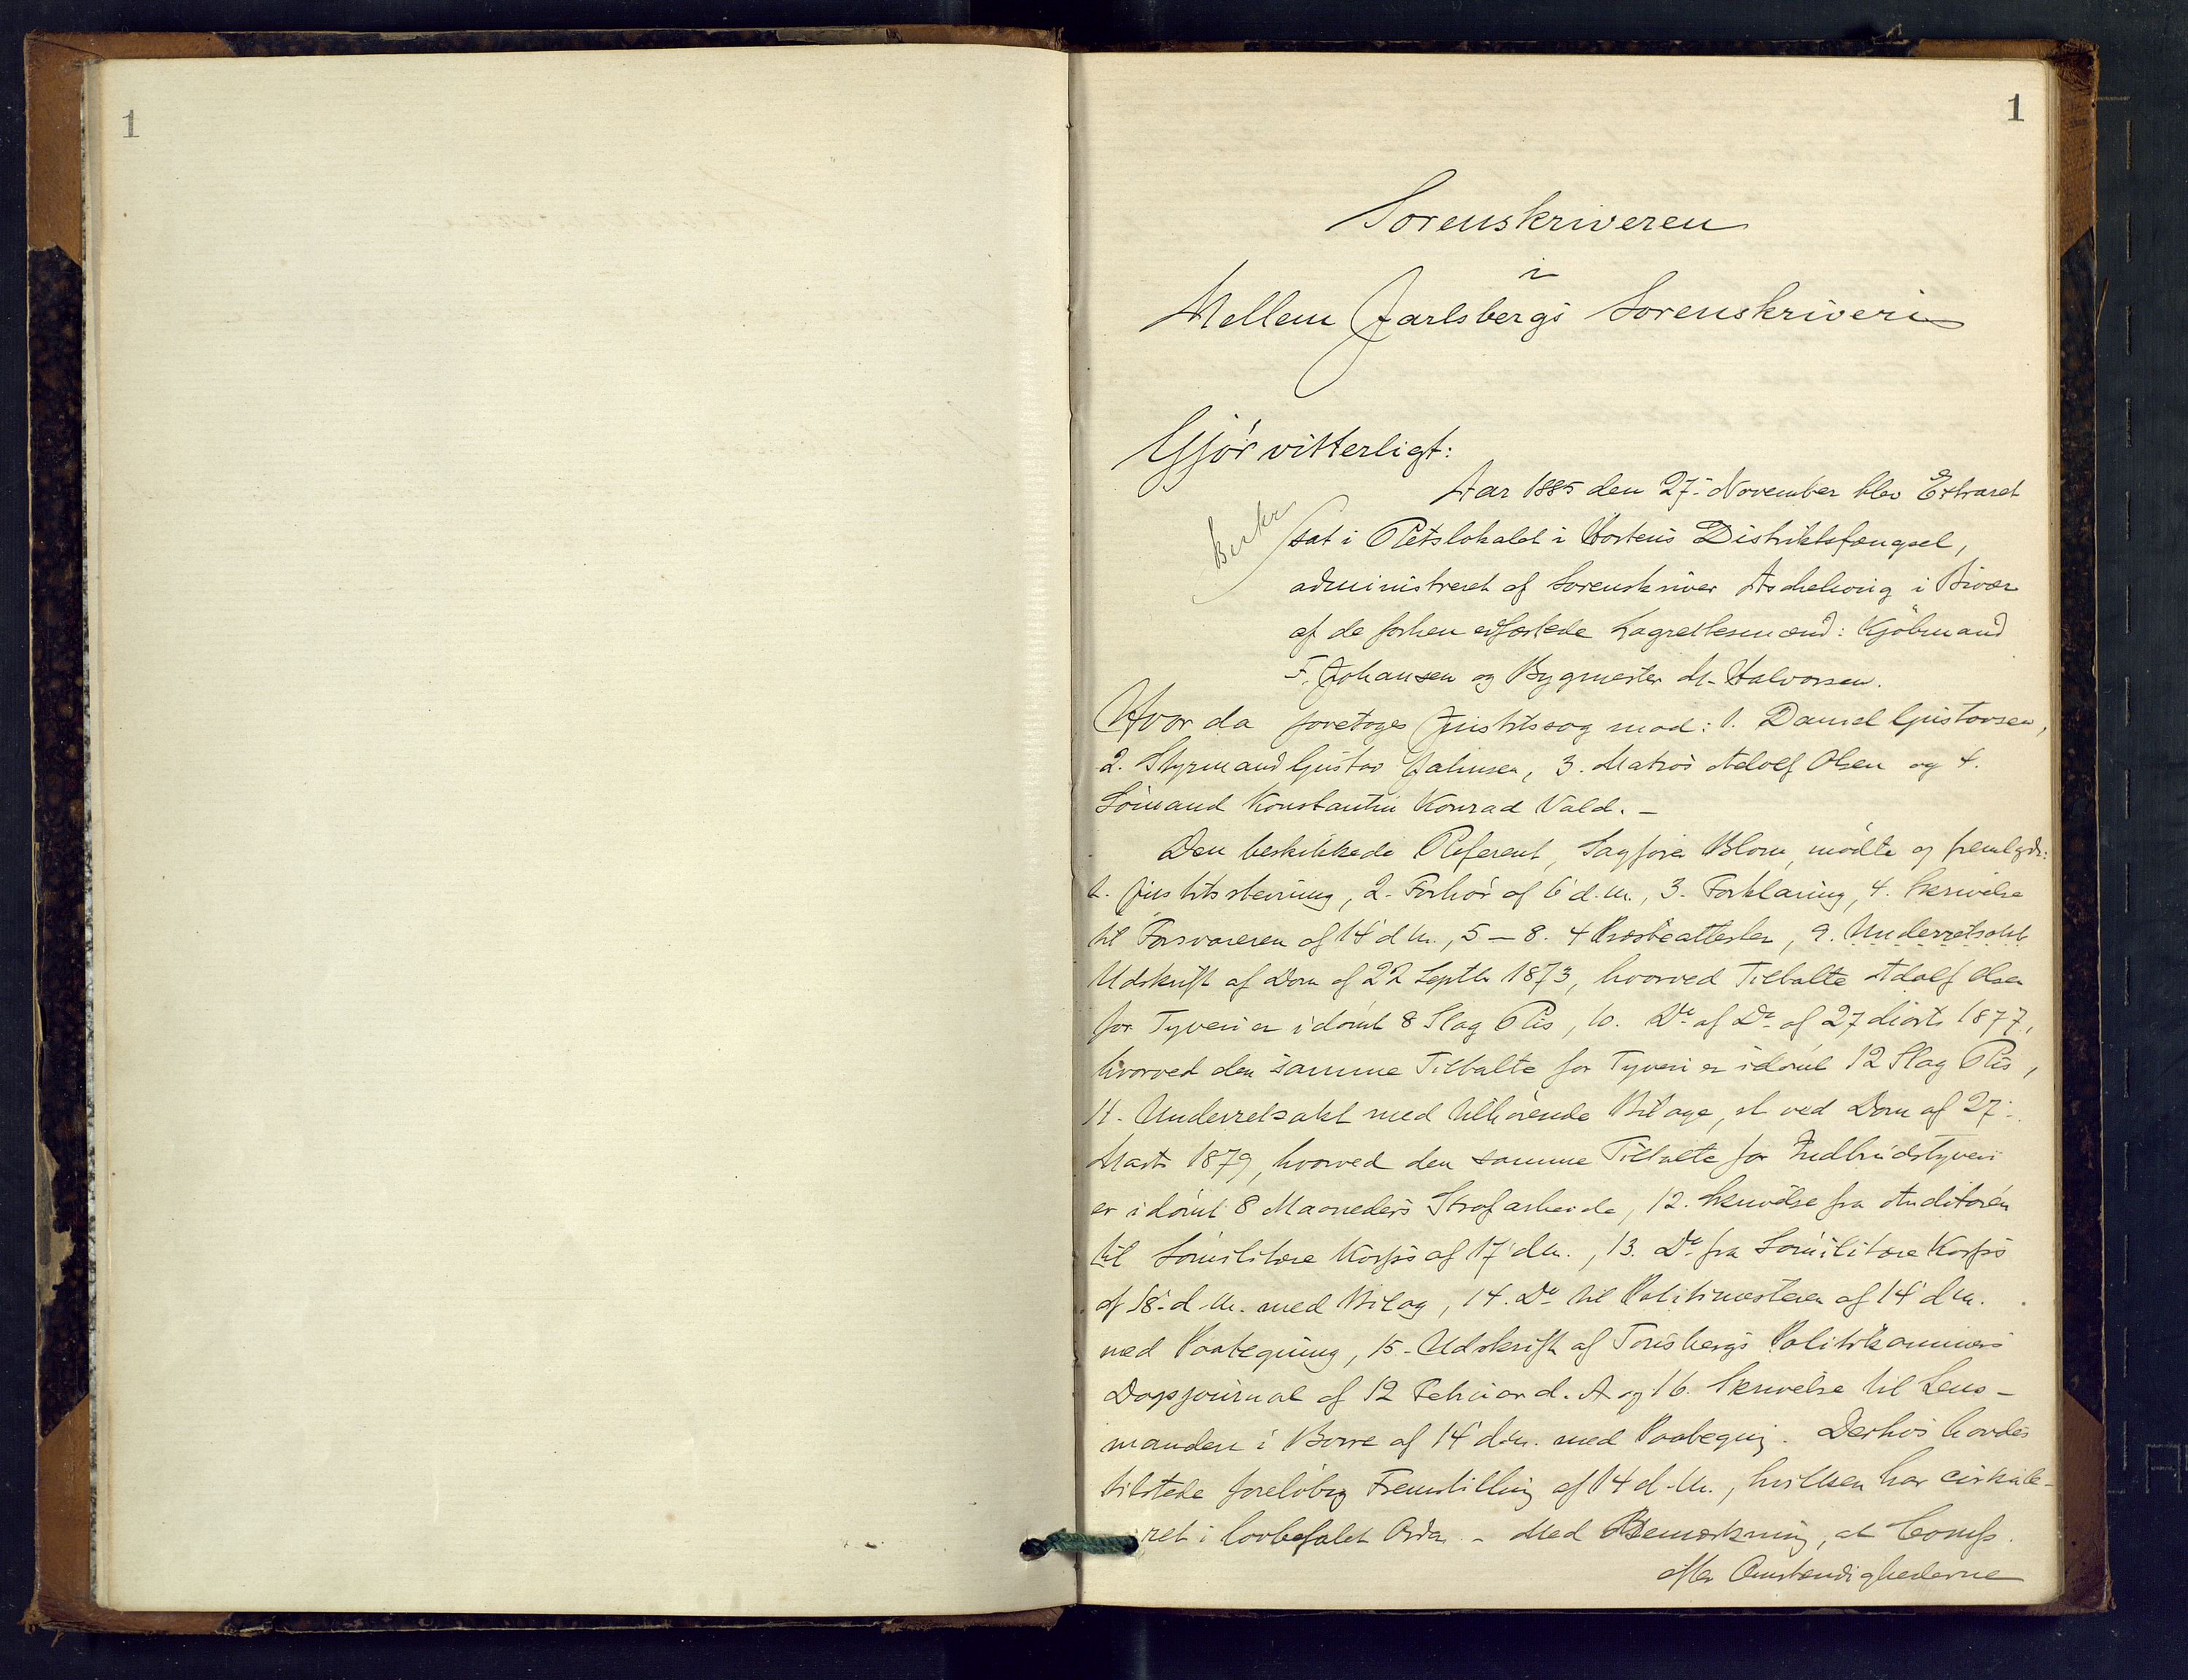 1
1
Sorenskriveren
i
Mellem Jarlsbergs Sorenskriveri
Gjör vitterligt:
Aar 1885 den 27. November blev Extraret
sat i Retslokalet i Hortens Distriktsfængsel,
administreret af Sorenskriver Aschehoug i Bivær
af de forhen edfæstede Lagrettesmænd: Kjöbmand
F. Johansen og Bygmester M. Halvorsen.
Hvor da foretoges Justitssag mod: 1. Daniel Gustavsen,
2. Styrmand Gustav Jahnsen, 3. Matros Adolf Olsen og 4.
Sömand Konstantin Konrad Vald. –
Den beskikkede Referent, Sagförer Blom, mödte og fremlagde:
1. Justitsstevning, 2. Forhör af 6 d. M., 3. Forklaring, 4. Skrivelse
til Forsvareren af 14 d M., 5 – 8. 4 Præsteattester, 9. Underretsakt
Udskrift af Dom af 22 Septbr 1873, hvorved Tiltalte Adolf Olsen
for Tyveri er idömt 8 Slag Ris, 10. Do af Do af 27 Marts 1877,
hvorved den samme Tiltalte for Tyveri er idömt 12 Slag Ris,
11. Underretsakt med tilhörende Bilage, st ved Dom af 27.
Marts 1879, hvorved den samme Tiltalte for Indbrudstyveri
er idömt 8 Maaneders Strafarbeide, 12. Skrivelse fra Auditören
til Sömilitære Korps af 17 d M., 13. Do fra Sömilitære Korps
af 18. d. M. med Bilag, 14. Do til Politimesteren af 14 d M.
med Paategning, 15. Udskrift af Tönsbergs Politikammers
Dagsjournal af 12 Februar d. A og 16. Skrivelse til Lens-
manden i Borre af 14 d M. med Paategng. Derhos havdes
tilstede forelöbig Fremstilling af 14 d. M., hvilken har cirkule-
ret i lovbefalet Orden. – Med Bemærkning, at Comp.
efter Omstændighederne